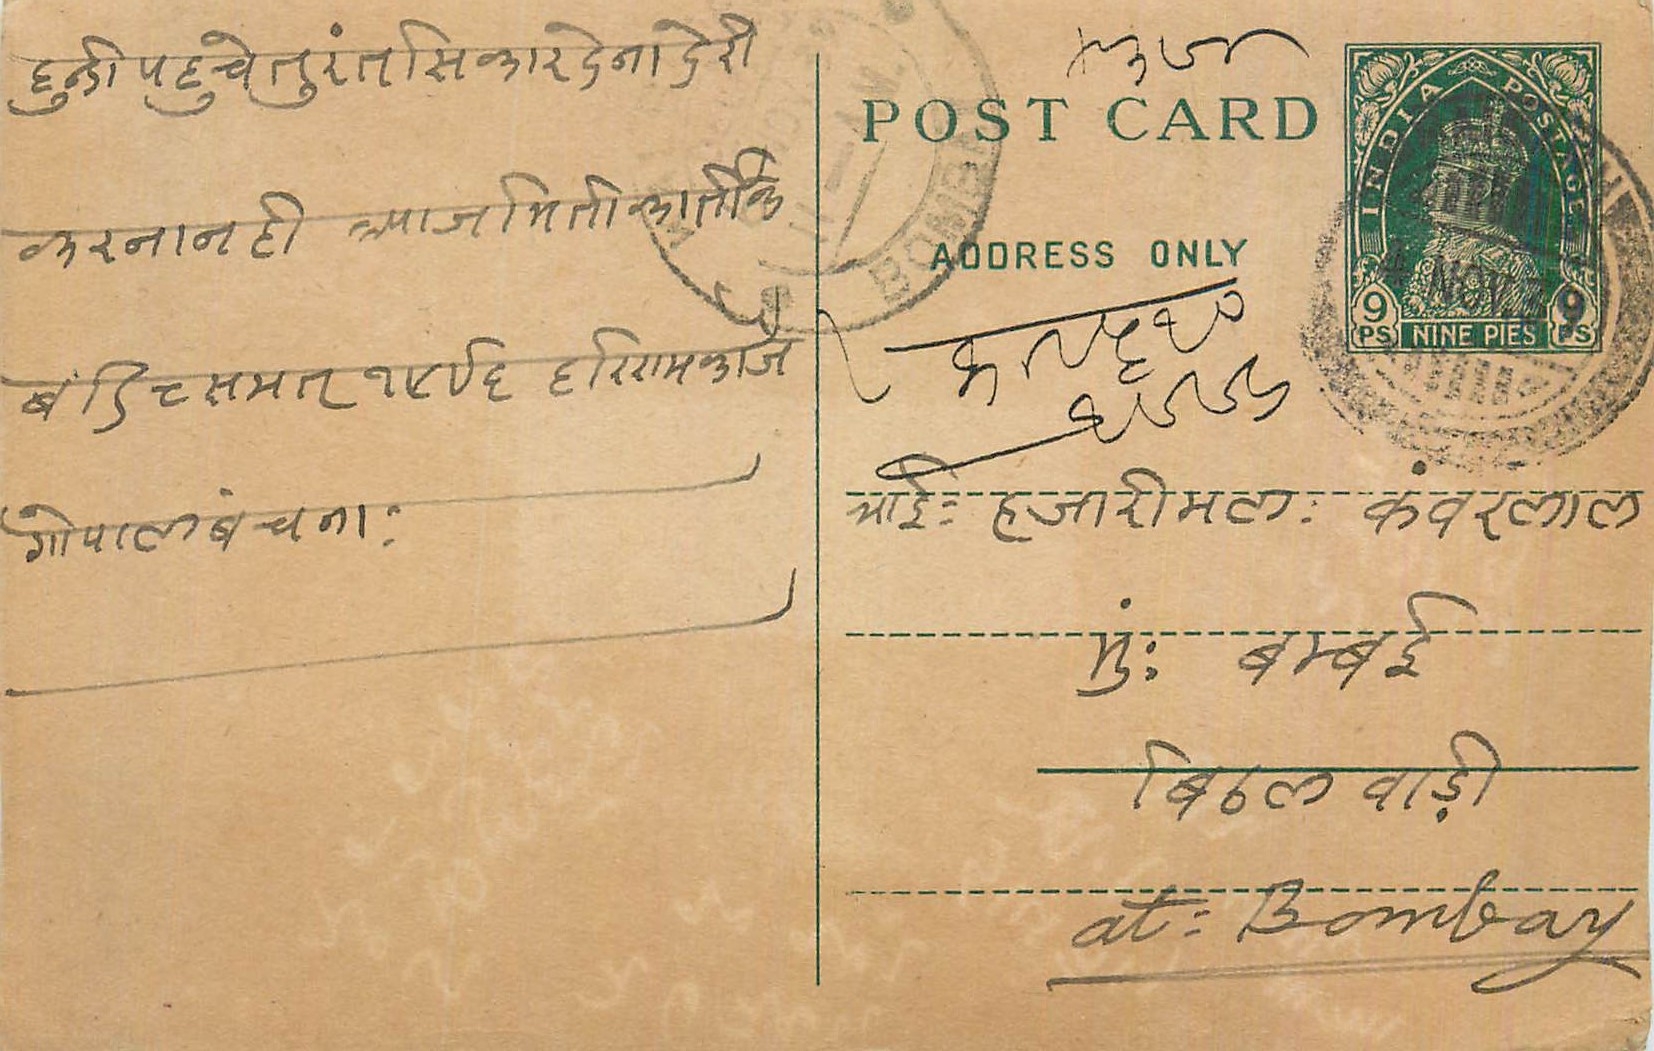 हुन्डी पहुचे तुरंत सिकार देना देरी
करना नही आज मिती कार्तीक
बदि ८ समत १९९६ हरिराम का ज
गोपाल बंचना:
POST CARD
INDIA POSTAGE
ADDRESS ONLY
9 PS NINE PIES 9 PS
NOV
BOMBAY
भाई: हजारीमल: कंवरलाल
मुं: बम्बई
बिठल वाड़ी
at: Bombay